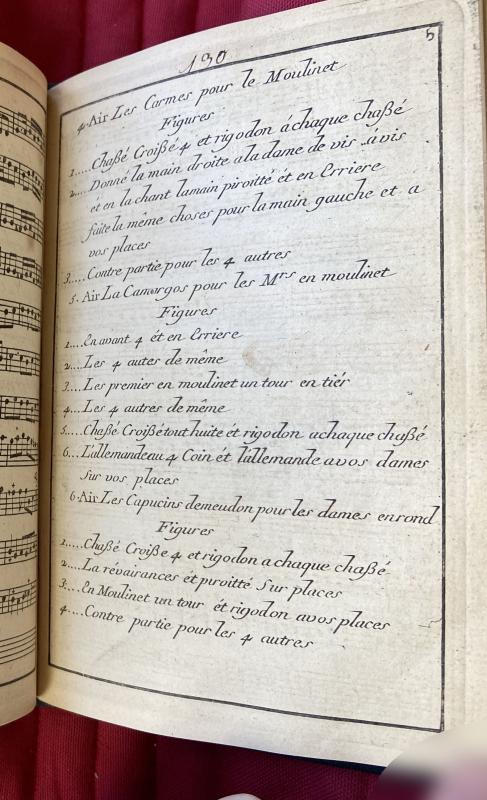 130
5
4. Air Les Carmes pour le Moulinet
Figures
1.....Chaßé Croißé 4 et rigodon á chaque chaßé
2....Donné la main droite a la dame de vis á vis
et en la chant la main piroitté ét en Erriere
faite la même choses pour la main gauche et a
vos places
3.....Contre partie pour les 4 autres
5. Air La Camargos pour les Mrs en moulinet
Figures
1....En avant 4 ét en Erriere
2....Les 4 autes de même
3....Les premier en moulinet un tour en tiér
4....Les 4 autres de même
5....Chaßé Croißé tout huite ét rigodon a chaque chaßé
6....L'allemande au 4 Coin ét l'allemande a vos dames
Sur vos places
6. Air Les Capucins demeudon pour les dames en rond
Figures
1.....Chaßé Croiße 4 et rigodon a chaque chaßé
2....La révairances et piroitté Sur places
3....En Moulinet un tour ét rigodon a vos places
4....Contre partie pour les 4 autres